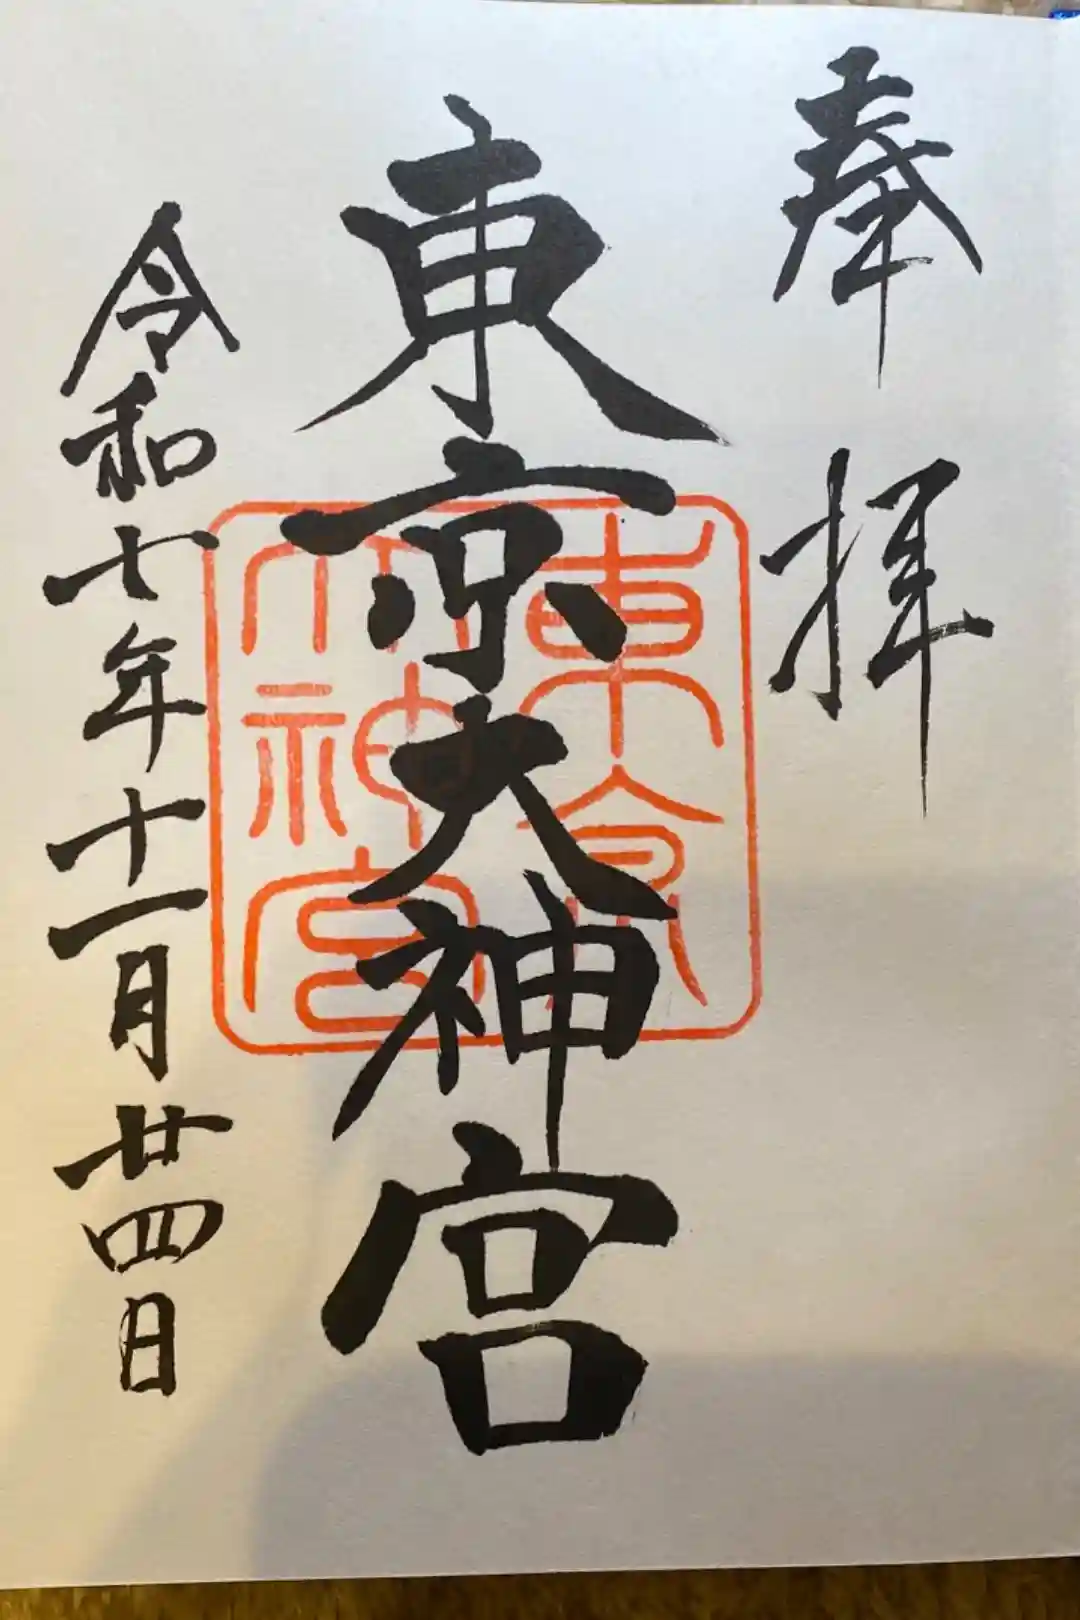 奉拝
東京大神宮
東京大神宮
令和七年十一月廿四日